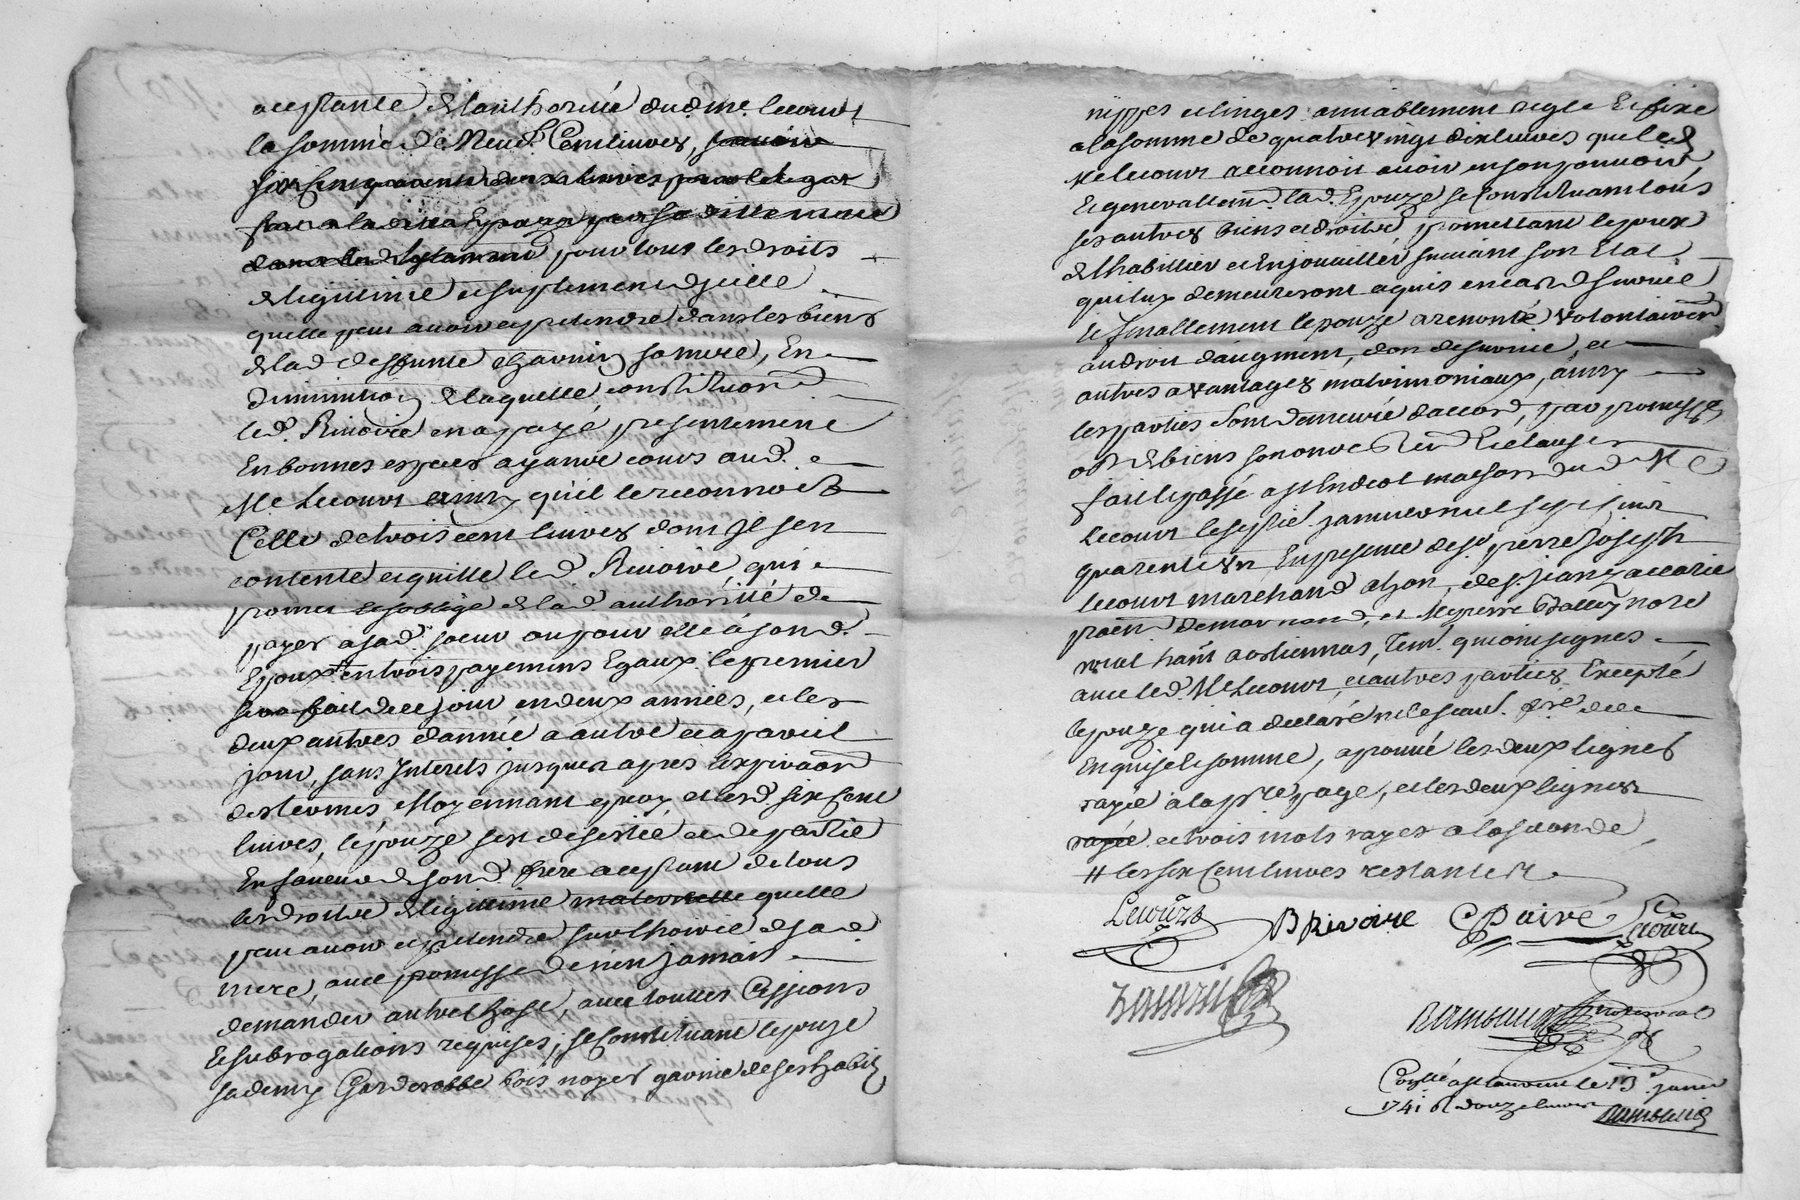 acceptante de lauthorité dud. me. lecourt
la somme de Neuf Cent livres, scavoir
six cent quarante deux livres pour le legat
fait a la ditte Epouze par sa ditte mere
dans led. testament pour tous les droits
de legitime et suplement dicelle
quelle peut avoir et pretendre dans les biens
de lad. deffunte chavnin sa mere, En
diminution de laquelle constitution
led. Rivoire en a payé presentement
En bonnes especes ayant cours aud.
Me Lecourt ainsy quil le reconnoit
Celle de trois cent livres dont il sen
contente et quitte led. Rivoire qui
promet et soblige de lad. authorité de
payer a sad. soeur ou pour elle a sond.
Epoux en trois payemens Egaux le premier
sera fait de ce jour en deux années, et les
deux autres dannée a autre et a pareil
jour, sans Interets jusques apres lexpiraon
des termes, Moyennant quoy et lesd. six Cent
livres, lepouze sest desistée et departie
En faveur de sond. frere acceptant de tous
les droits de legitime maternelle quelle
peut avoir et pretendre sur lhoirie de sad.
mere, avec promesse de rien jamais
demander autre chose, avec toutes Cessions
Et subrogations requises, se Constituant lepouze
sa demy Garderobbe bois noyer garnie de ses habits
nippes et linges amiablement reglé Et fixé
a la somme de quatre vingt dix livres que led.
Me lecourt reconnoit avoir en son pouvoir,
Et generallemt lad. Epouze se Constituant tous
ses autres biens et droits, promettant lepoux
de lhabiller et Enjouailler suivant son Etat
qui luy demeureront aquis en cas de survie
Et finallement lepouze a renoncé volontairemt
au droit daugment, don de survie, et
autres avantages matrimoniaux, ainsy
les parties sont demeuré daccord, par promesse
obn de biens sermt renon Et clauses
fait et passé a st andeol maison dud Me
Lecourt le septié. janvier mil sept cent
quarente un En presence de sr. pierre joseph
lecourt marchand a lyon, de sr. jean zacarie
et Me pierre
royal hant a ostiennas, tem. qui ont signés
avec led. Me Lecourt, et autres parties Excepté
lepouze qui a declaré ne le scavoir fre. de ce
Enquise et sommé, aprouvé les deux lignes
rayée a la pre page, et les deux lignes
rayée et trois mots rayes a la seconde,
# les six Cent livres restantes
Lecourt B Rivoire C Paire Lecourt
Rambaud note royal
Conllé a st laurent le 13e. janvr
1741 R douze livres Rambaud